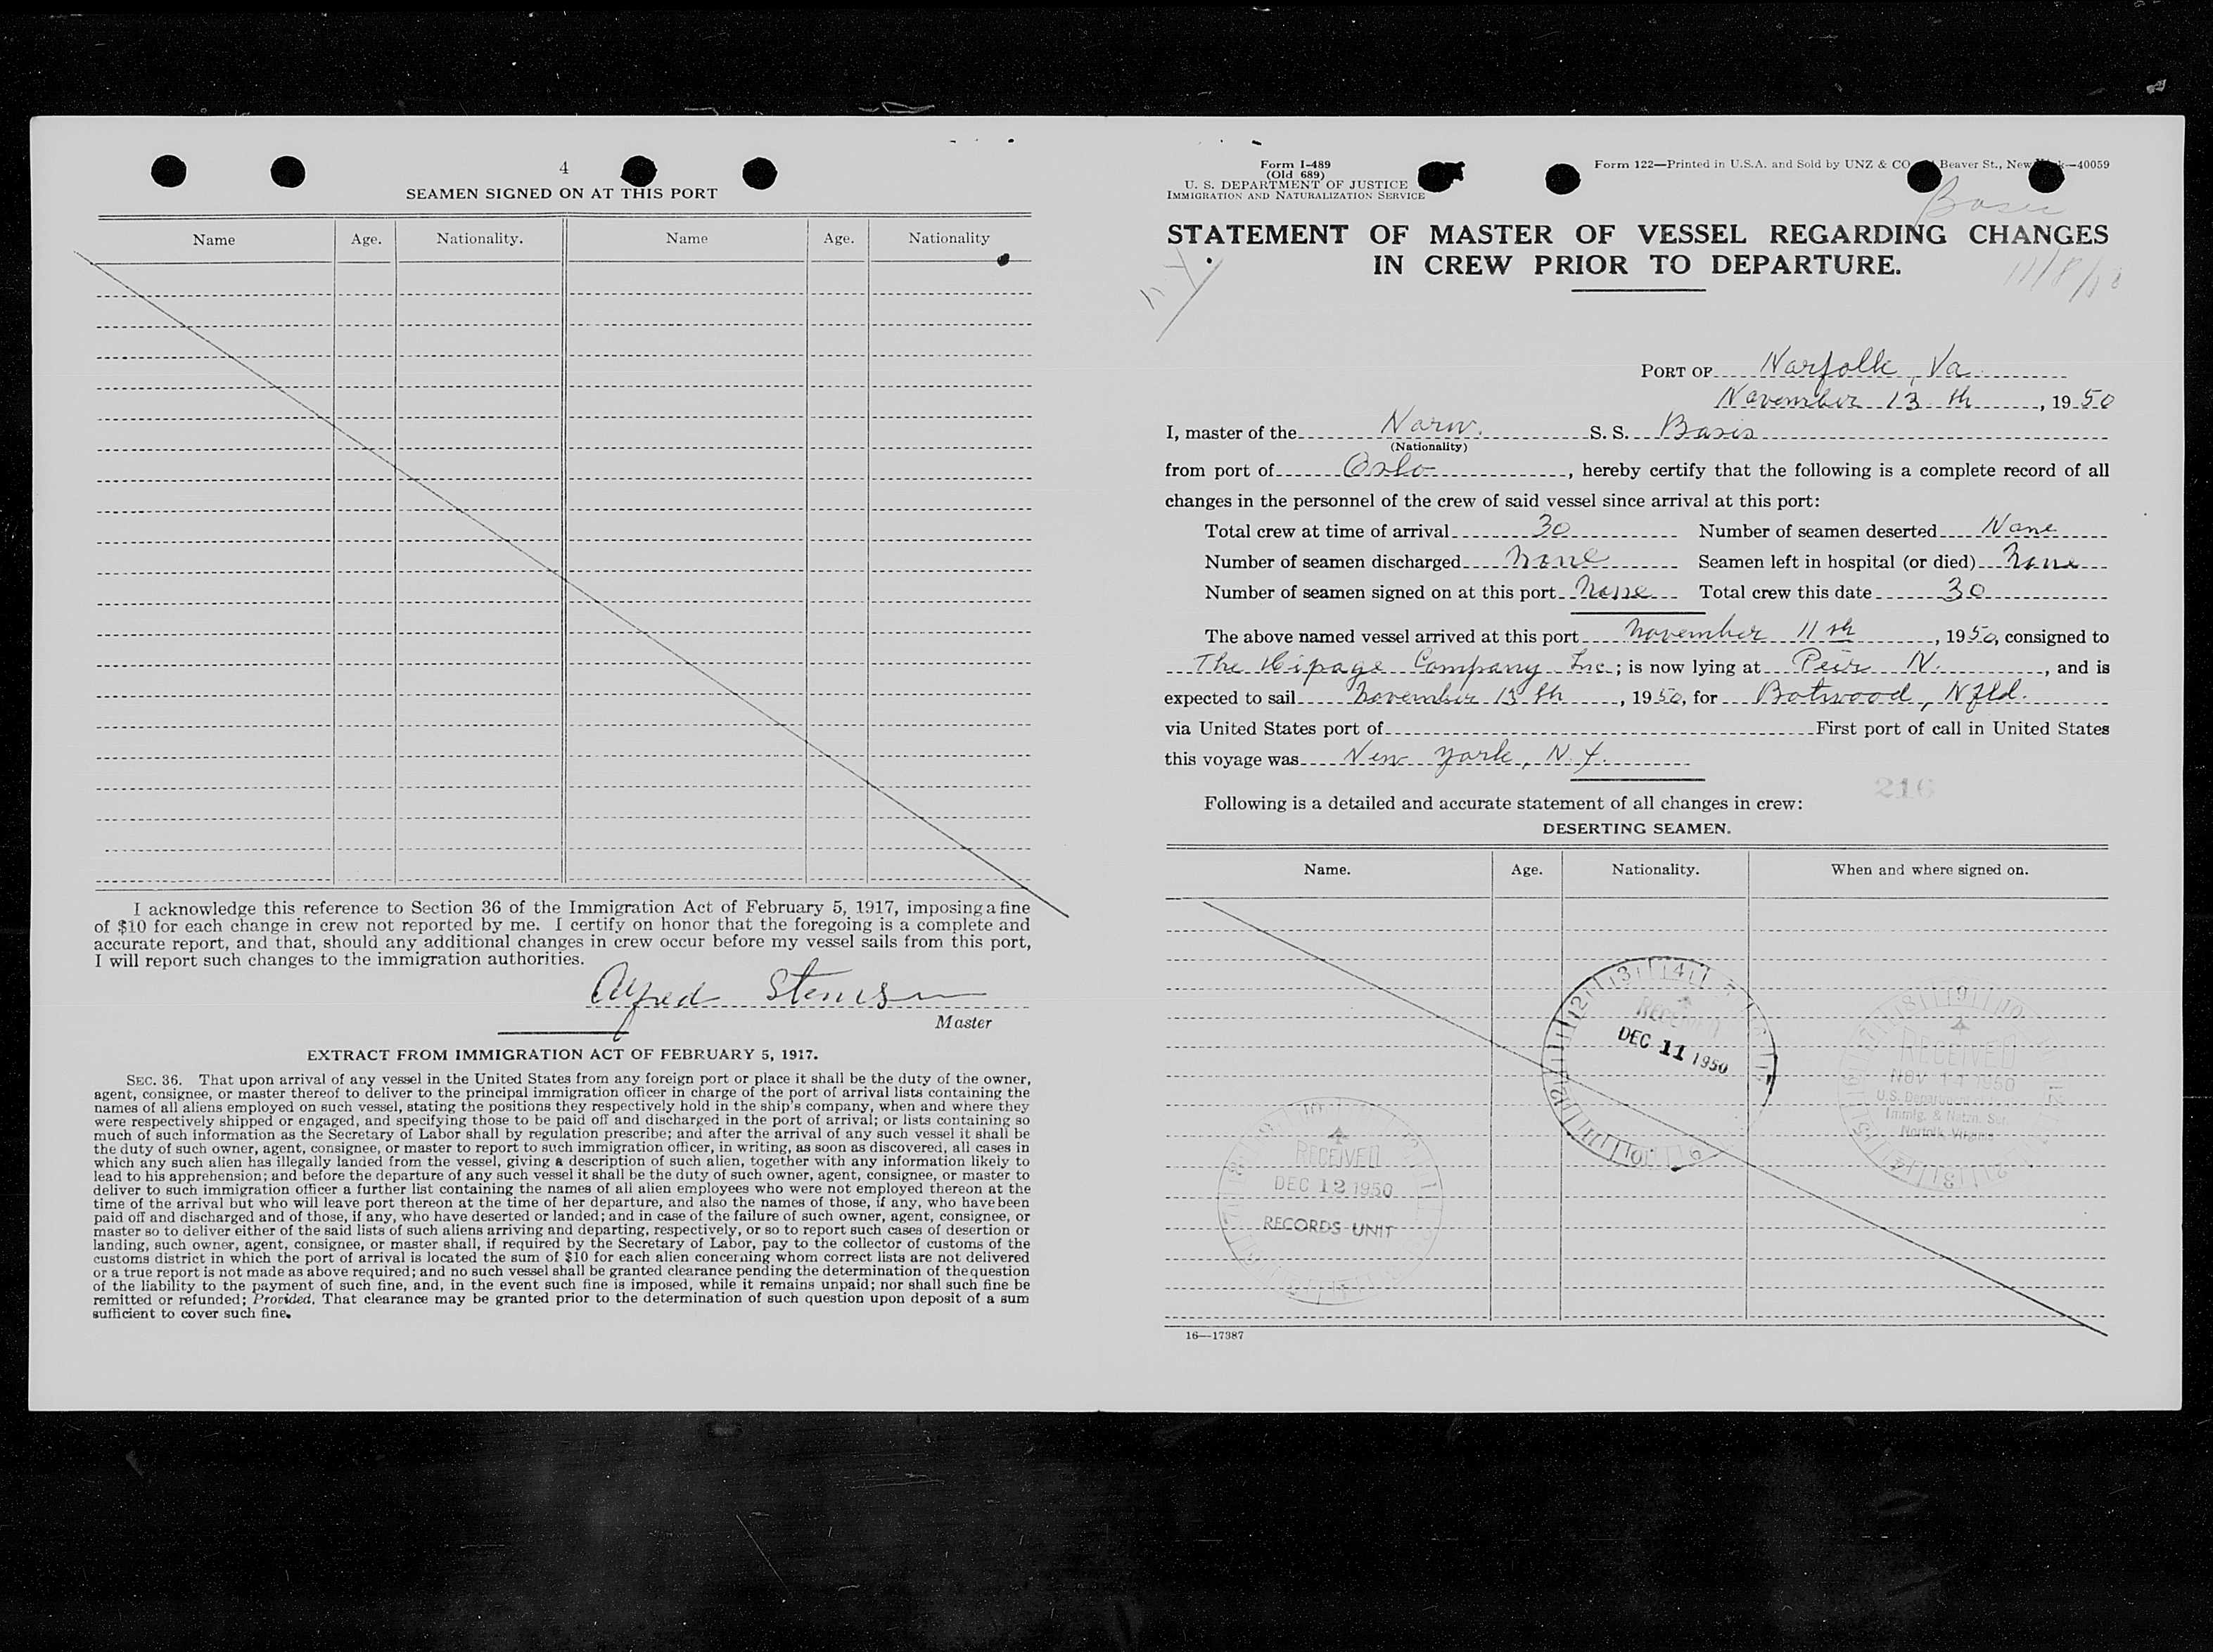 4
SEAMEN SIGNED ON AT THIS PORT
Name Age. Nationality. Name Age. Nationality
I acknowledge this reference to Section 36 of the Immigration Act of February 5, 1917, imposing a fine
of $10 for each change in crew not reported by me. I certify on honor that the foregoing is a complete and
accurate report, and that, should any additional changes in crew occur before my vessel sails from this port,
I will report such changes to the immigration authorities.
Alfred
Master
EXTRACT FROM IMMIGRATION ACT OF FEBRUARY 5, 1917.
SEC. 36. That upon arrival of any vessel in the United States from any foreign port or place it shall be the duty of the owner,
agent, consignee, or master thereof to deliver to the principal immigration officer in charge of the port of arrival lists containing the
names of all aliens employed on such vessel, stating the positions they respectively hold in the ship's company, when and where they
were respectively shipped or engaged, and specifying those to be paid off and discharged in the port of arrival; or lists containing so
much of such information as the Secretary of Labor shall by regulation prescribe; and after the arrival of any such vessel it shall be
the duty of such owner, agent, consignee, or master to report to such immigration officer, in writing, as soon as discovered, all cases in
which any such alien has illegally landed from the vessel, giving a description of such alien, together with any information likely to
lead to his apprehension; and before the departure of any such vessel it shall be the duty of such owner, agent, consignee, or master to
deliver to such immigration officer a further list containing the names of all alien employees who were not employed thereon at the
time of the arrival but who will leave port thereon at the time of her departure, and also the names of those, if any, who have been
paid off and discharged and of those, if any, who have deserted or landed; and in case of the failure of such owner, agent, consignee, or
master so to deliver either of the said lists of such aliens arriving and departing, respectively, or so to report such cases of desertion or
landing, such owner, agent, consignee, or master shall, if required by the Secretary of Labor, pay to the collector of customs of the
customs district in which the port of arrival is located the sum of $10 for each alien concerning whom correct lists are not delivered
or a true report is not made as above required; and no such vessel shall be granted clearance pending the determination of the question
of the liability to the payment of such fine, and, in the event such fine is imposed, while it remains unpaid; nor shall such fine be
remitted or refunded; Provided, That clearance may be granted prior to the determination of such question upon deposit of a sum
sufficient to cover such fine.
Form I-489
(Old 689)
U. S. DEPARTMENT OF JUSTICE
IMMIGRATION AND NATURALIZATION SERVICE
Form 122—Printed in U.S.A. and Sold by UNZ & CO Beaver St., New —40059
STATEMENT OF MASTER OF VESSEL REGARDING CHANGES
IN CREW PRIOR TO DEPARTURE.
NY
PORT OF Norfolk, Va.
November 13 th, 1950
I, master of the Norw. S. S. Basis
(Nationality)
from port of Oslo, hereby certify that the following is a complete record of all
changes in the personnel of the crew of said vessel since arrival at this port:
Total crew at time of arrival 30 Number of seamen deserted None
Number of seamen discharged None Seamen left in hospital (or died) None
Number of seamen signed on at this port None Total crew this date 30
The above named vessel arrived at this port November 11 th, 1950, consigned to
The Hipage Company Inc.; is now lying at Peir N., and is
expected to sail November 13 th, 1950, for Botwood, Nfld.
via United States port of First port of call in United States
this voyage was New York, N.Y.
216
Following is a detailed and accurate statement of all changes in crew:
DESERTING SEAMEN.
Name. Age. Nationality. When and where signed on.
RECEIVED
DEC 11 1950
RECEIVED
NOV 14 1950
U.S. Department
Immig. & Natzn. Ser.
Norfolk, Virginia
RECEIVED
DEC 12 1950
RECORDS UNIT
16—17387